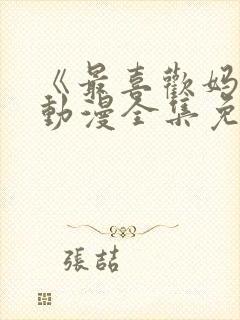 《最喜歡妈
動漫全集免
張喆